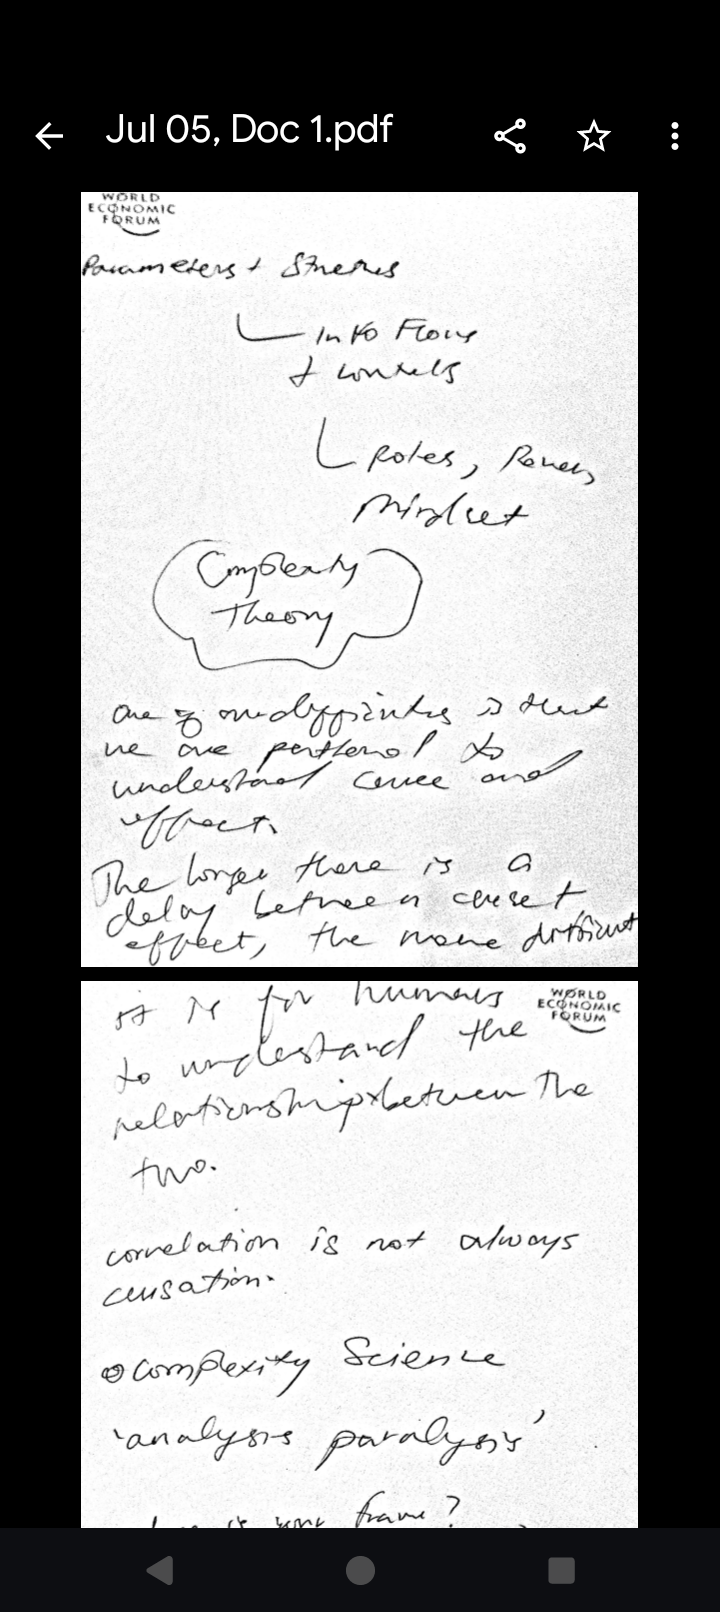 Jul 05, Doc 1.pdf
WORLD
ECONOMIC
FORUM
Parameters +
Info Flows
+
Roles,
Mindset
Complexity
Theory
One of our difficulties is that
we are
to
understand cause and
effect.
The longer there is a
delay between cause +
effect, the more difficult
it is for humans
WORLD
ECONOMIC
FORUM
to understand the
relationship between the
two.
correlation is not always
causation.
complexity Science
'analysis paralysis'
is your frame?